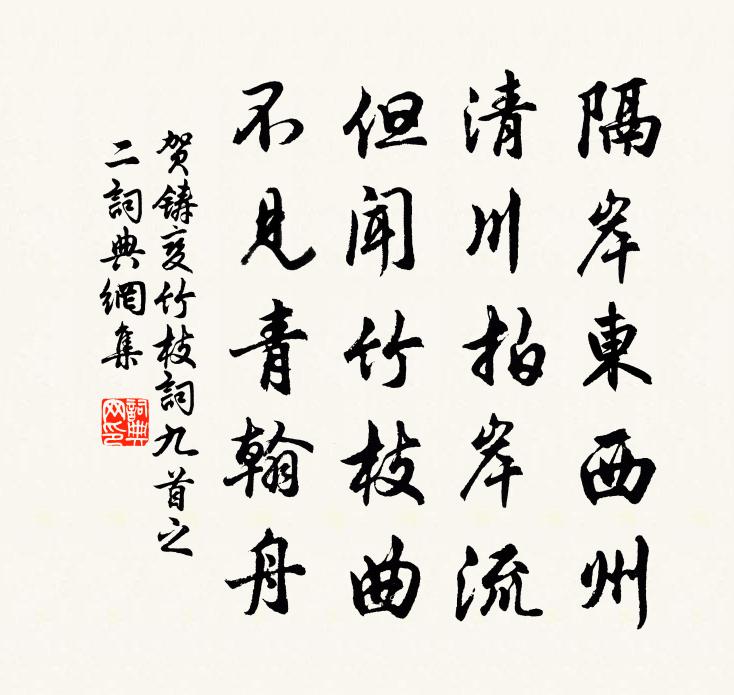 隔岸東西州
清川拍岸流
但闻竹枝曲
不見青翰舟
贺鑄变竹枝詞九首之
二詞典網集
詞典
网印